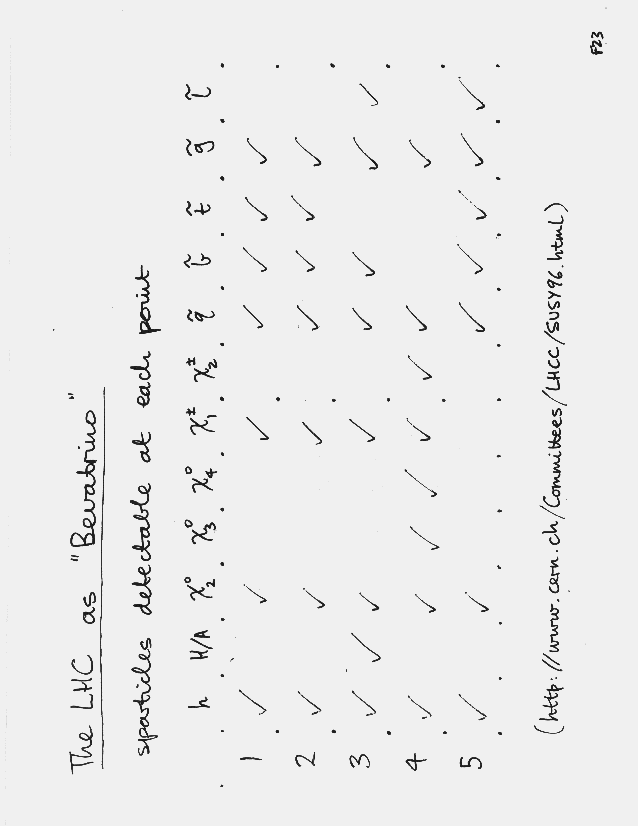 The LHC as "Bevatrino"
sparticles detectable at each point
h H/A χ₂⁰ χ₃⁰ χ₄⁰ χ₁± χ₂± q̃ b̃ t̃ g̃ l̃
1 ✓ ✓ ✓ ✓ ✓ ✓ ✓
2 ✓ ✓ ✓ ✓ ✓ ✓ ✓
3 ✓ ✓ ✓ ✓ ✓ ✓ ✓ ✓
4 ✓ ✓ ✓ ✓ ✓ ✓ ✓ ✓
5 ✓ ✓ ✓ ✓ ✓ ✓ ✓
(http://www.cern.ch/Committees/LHCC/SUSY96.html)
F23